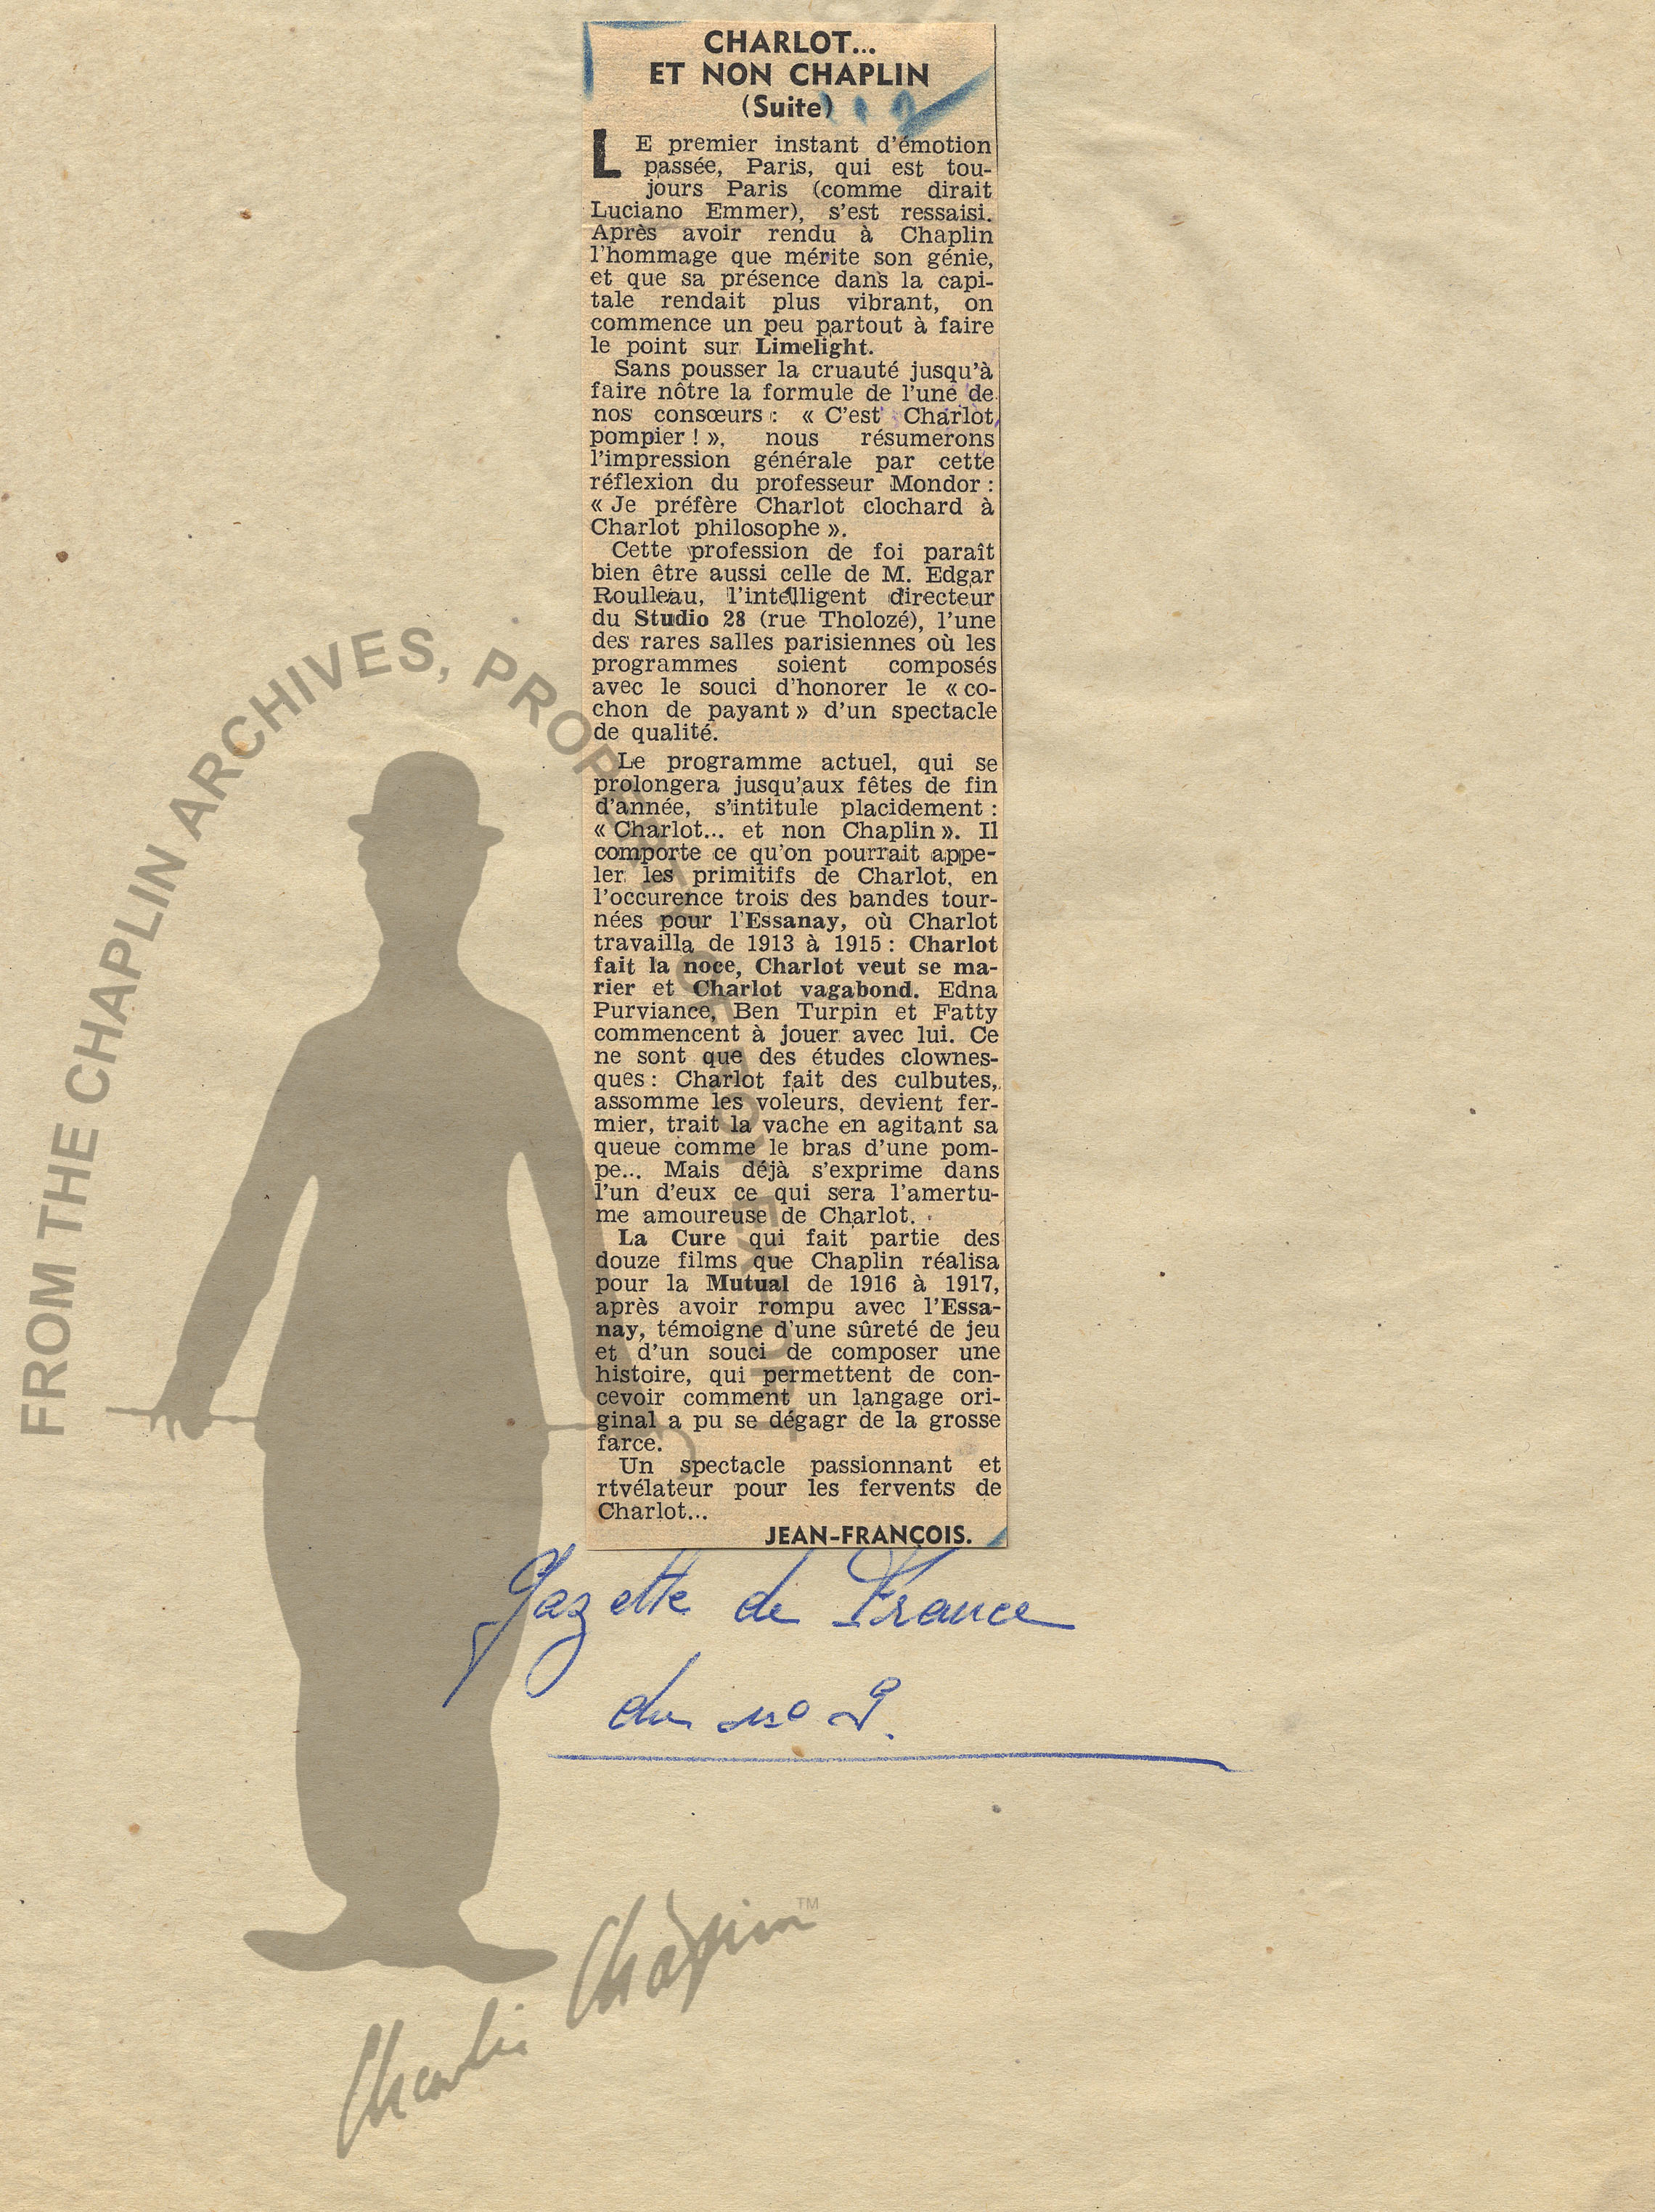 CHARLOT...
ET NON CHAPLIN
(Suite)
LE premier instant d'émotion
passée, Paris, qui est tou-
jours Paris (comme dirait
Luciano Emmer), s'est ressaisi.
Après avoir rendu à Chaplin
l'hommage que mérite son génie,
et que sa présence dans la capi-
tale rendait plus vibrant, on
commence un peu partout à faire
le point sur Limelight.
Sans pousser la cruauté jusqu'à
faire nôtre la formule de l'une de
nos consœurs : « C'est Charlot
pompier ! », nous résumerons
l'impression générale par cette
réflexion du professeur Mondor :
« Je préfère Charlot clochard à
Charlot philosophe ».
Cette profession de foi paraît
bien être aussi celle de M. Edgar
Roulleau, l'intelligent directeur
du Studio 28 (rue Tholozé), l'une
des rares salles parisiennes où les
programmes soient composés
avec le souci d'honorer le « co-
chon de payant » d'un spectacle
de qualité.
Le programme actuel, qui se
prolongera jusqu'aux fêtes de fin
d'année, s'intitule placidement :
« Charlot... et non Chaplin ». Il
comporte ce qu'on pourrait appe-
ler les primitifs de Charlot, en
l'occurence trois des bandes tour-
nées pour l'Essanay, où Charlot
travailla de 1913 à 1915 : Charlot
fait la noce, Charlot veut se ma-
rier et Charlot vagabond. Edna
Purviance, Ben Turpin et Fatty
commencent à jouer avec lui. Ce
ne sont que des études clownes-
ques : Charlot fait des culbutes,
assomme les voleurs, devient fer-
mier, trait la vache en agitant sa
queue comme le bras d'une pom-
pe... Mais déjà s'exprime dans
l'un d'eux ce qui sera l'amertu-
me amoureuse de Charlot.
La Cure qui fait partie des
douze films que Chaplin réalisa
pour la Mutual de 1916 à 1917,
après avoir rompu avec l'Essa-
nay, témoigne d'une sûreté de jeu
et d'un souci de composer une
histoire, qui permettent de con-
cevoir comment un langage ori-
ginal a pu se dégagr de la grosse
farce.
Un spectacle passionnant et
rtvélateur pour les fervents de
Charlot...
JEAN-FRANÇOIS.
Gazette de France
du no 9.
FROM THE CHAPLIN ARCHIVES, PROPERTY OF ROY EXPORT
Charlie Chaplin TM